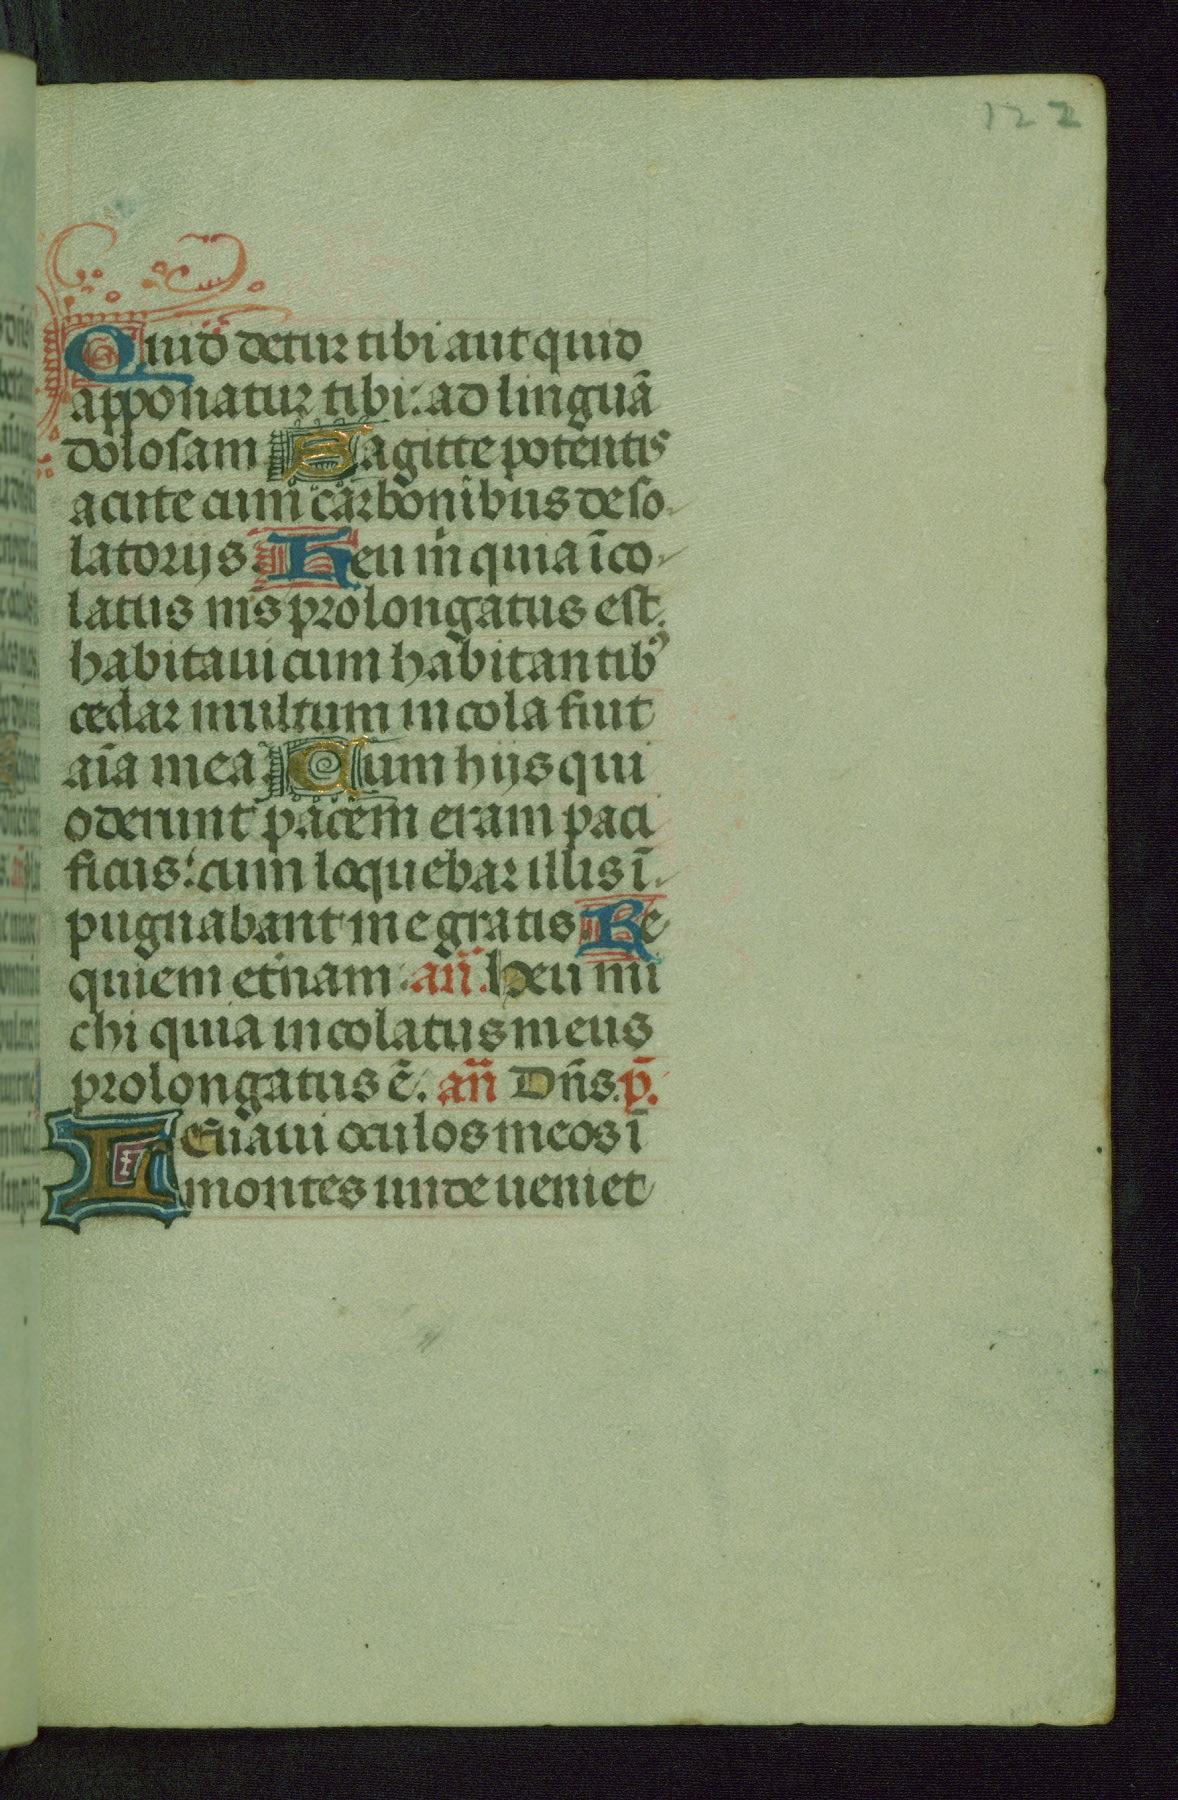 122
Quid detur tibi aut quid
apponatur tibi: ad linguā
dolosam Sagitte potentis
acute cum carbonibus deso
latorijs. Heu m̄ quia īco
latus m̄s prolongatus est.
habitaui cum habitantibꝰ
cedar multum incola fuit
aīa mea. Cum hijs qui
oderunt pacem eram paci
ficus: cum loquebar illis ī
pugnabant me gratis Re
quiem et̄nam. an̄. Heu mi
chi quia incolatus meus
prolongatus ē. an̄ Dn̄s. p̄.
Leuaui oculos meos ī
montes unde ueniet